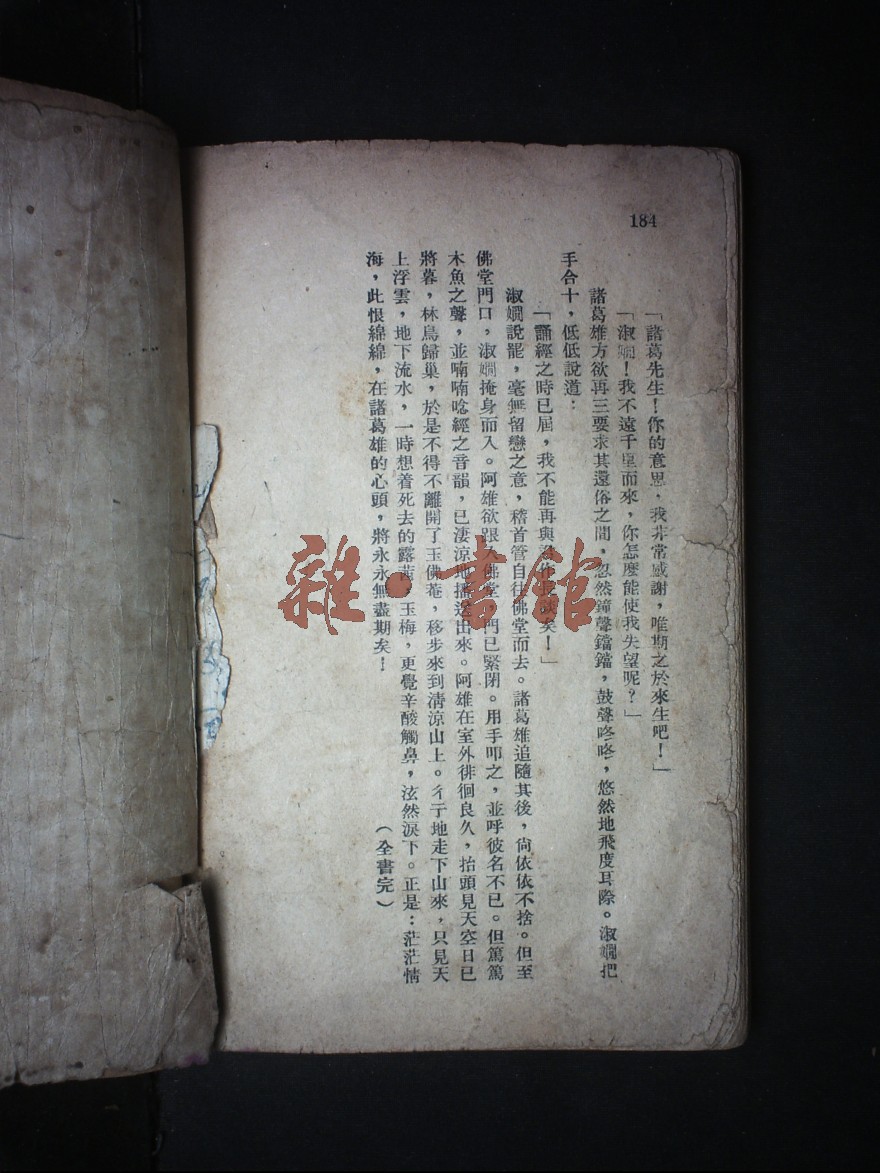 184
「諸葛先生！你的意思，我非常感謝，唯期之於來生吧！」
「淑嫺！我不遠千里而來，你怎麼能使我失望呢？」
諸葛雄方欲再三要求其還俗之間，忽然鐘聲鐺鐺，鼓聲咚咚，悠然地飛度耳際。淑嫺把
手合十，低低說道：
「誦經之時已屆，我不能再與矣！」
淑嫺說罷，毫無留戀之意，稽首管自往佛堂而去。諸葛雄追隨其後，尙依依不捨。但至
佛堂門口，淑嫺掩身而入。阿雄欲跟入佛堂，門已緊閉。用手叩之，並呼彼名不已。但篤篤
木魚之聲，並喃喃唸經之音韻，已淒涼地播送出來。阿雄在室外徘徊良久，抬頭見天空日已
將暮，林鳥歸巢，於是不得不離開了玉佛菴，移步來到清涼山上。彳亍地走下山來，只見天
上浮雲，地下流水，一時想着死去的露茜，玉梅，更覺辛酸觸鼻，泫然淚下。正是：茫茫情
海，此恨綿綿，在諸葛雄的心頭，將永永無盡期矣！
（全書完）
雜·書館